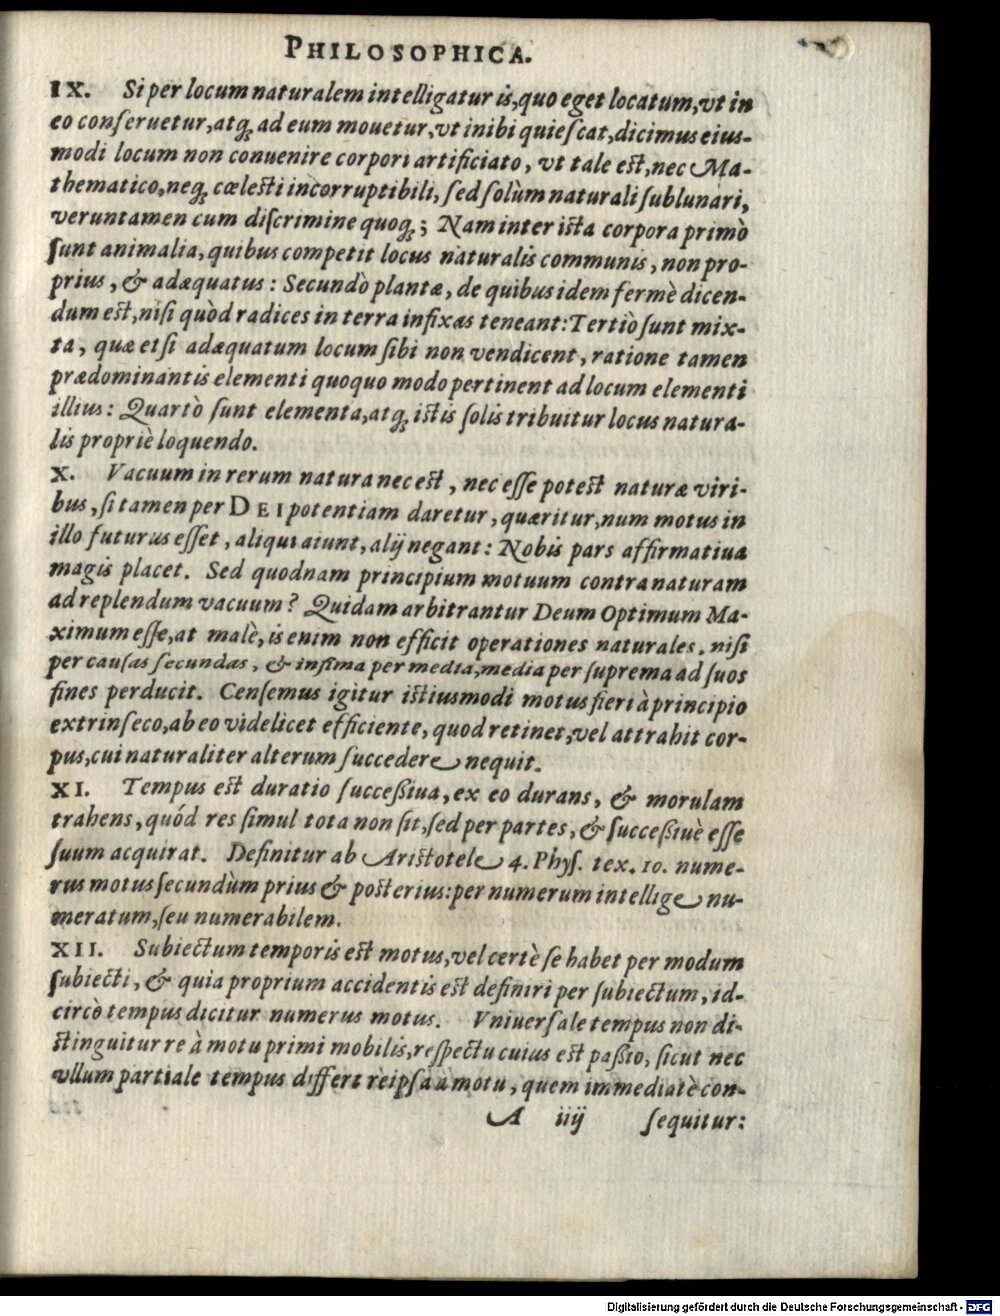 PHILOSOPHICA.
IX. Si per locum naturalem intelligatur is, quo eget locatum, vt in
eo conſeruetur, atq́; ad eum mouetur, vt inibi quieſcat, dicimus eius-
modi locum non conuenire corpori artificiato, vt tale est, nec Ma-
thematico, neq́; cœlesti incorruptibili, ſed ſolùm naturali ſublunari,
veruntamen cum diſcrimine quoq́; ; Nam inter ista corpora primò
ſunt animalia, quibus competit locus naturalis communis, non pro-
prius, & adæquatus: Secundò plantæ, de quibus idem fermè dicen-
dum est, niſi quòd radices in terra infixas teneant: Tertiò ſunt mix-
ta, quæ etſi adæquatum locum ſibi non vendicent, ratione tamen
prædominantis elementi quoquo modo pertinent ad locum elementi
illius: Quartò ſunt elementa, atq́; istis ſolis tribuitur locus natura-
lis propriè loquendo.
X. Vacuum in rerum natura nec est, nec eſſe potest naturæ viri-
bus, ſi tamen per DEI potentiam daretur, quæritur, num motus in
illo futurus eſſet, aliqui aiunt, alij negant: Nobis pars affirmatiua
magis placet. Sed quodnam principium motuum contra naturam
ad replendum vacuum? Quidam arbitrantur Deum Optimum Ma-
ximum eſſe, at malè, is enim non efficit operationes naturales, niſi
per cauſas ſecundas, & infima per media, media per ſuprema ad ſuos
fines perducit. Cenſemus igitur istiusmodi motus fieri à principio
extrinſeco, ab eo videlicet efficiente, quod retinet, vel attrahit cor-
pus, cui naturaliter alterum ſuccedere nequit.
XI. Tempus est duratio ſucceßiua, ex eo durans, & morulam
trahens, quód res ſimul tota non ſit, ſed per partes, & ſucceßiuè eſſe
ſuum acquirat. Definitur ab Aristotele 4. Phyſ. tex. 10. nume-
rus motus ſecundùm prius & posterius: per numerum intellige nu-
meratum, ſeu numerabilem.
XII. Subiectum temporis est motus, vel certè ſe habet per modum
ſubiecti, & quia proprium accidentis est definiri per ſubiectum, id-
circò tempus dicitur numerus motus. Vniuerſale tempus non di-
stinguitur re à motu primi mobilis, reſpectu cuius est paßio, ſicut nec
vllum partiale tempus differt reipſa à motu, quem immediatè con-
A iiij ſequitur:
Digitalisierung gefördert durch die Deutsche Forschungsgemeinschaft - DFG